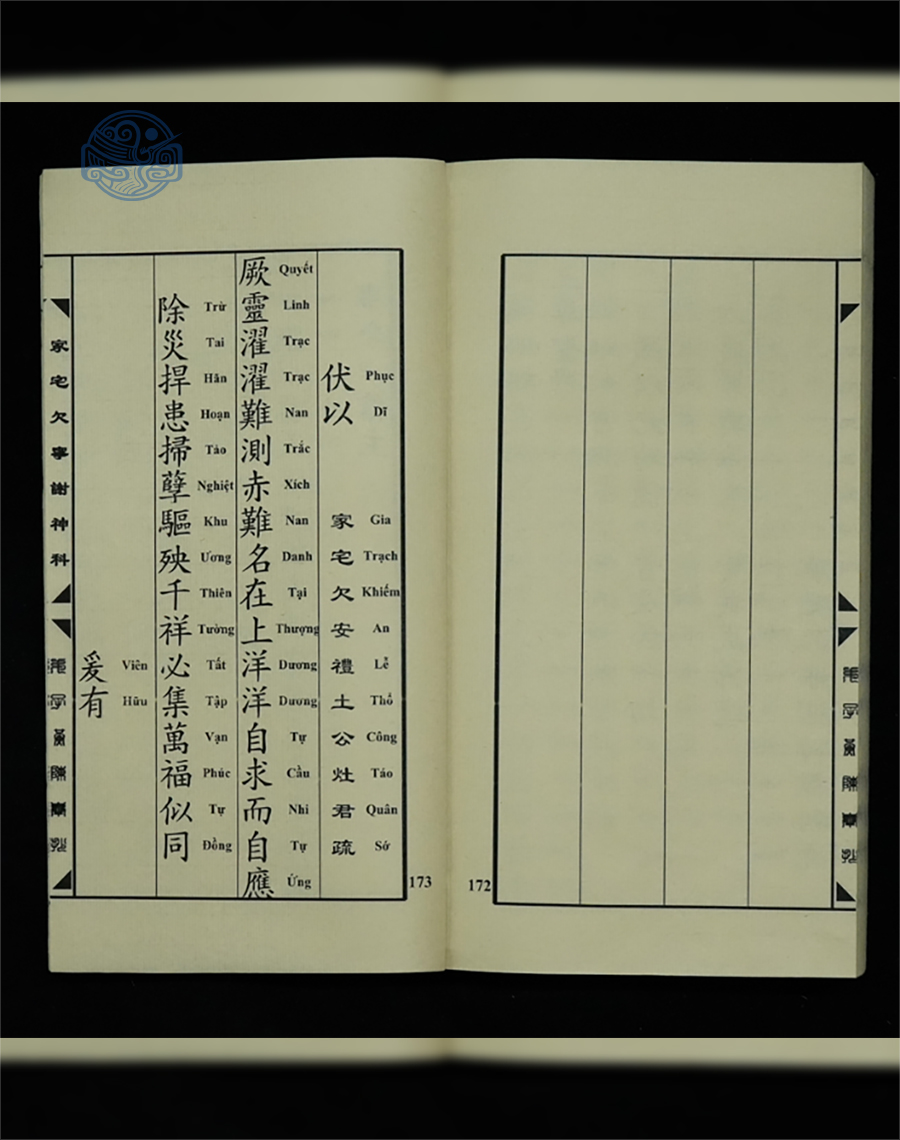 伏以 家宅欠安禮土公灶君疏
Phục Dĩ Gia Trạch Khiếm An Lễ Thổ Công Táo Quân Sớ
厥靈濯濯難測赤難名在上洋洋自求而自應
Quyết Linh Trạc Trạc Nan Trắc Xích Nan Danh Tại Thượng Dương Dương Tự Cầu Nhi Tự Ứng
除災捍患掃孽驅殃千祥必集萬福似同
Trừ Tai Hãn Hoạn Tảo Nghiệt Khu Ương Thiên Tường Tất Tập Vạn Phúc Tự Đồng
爰有
Viên Hữu
家宅欠寧謝神科
173
172